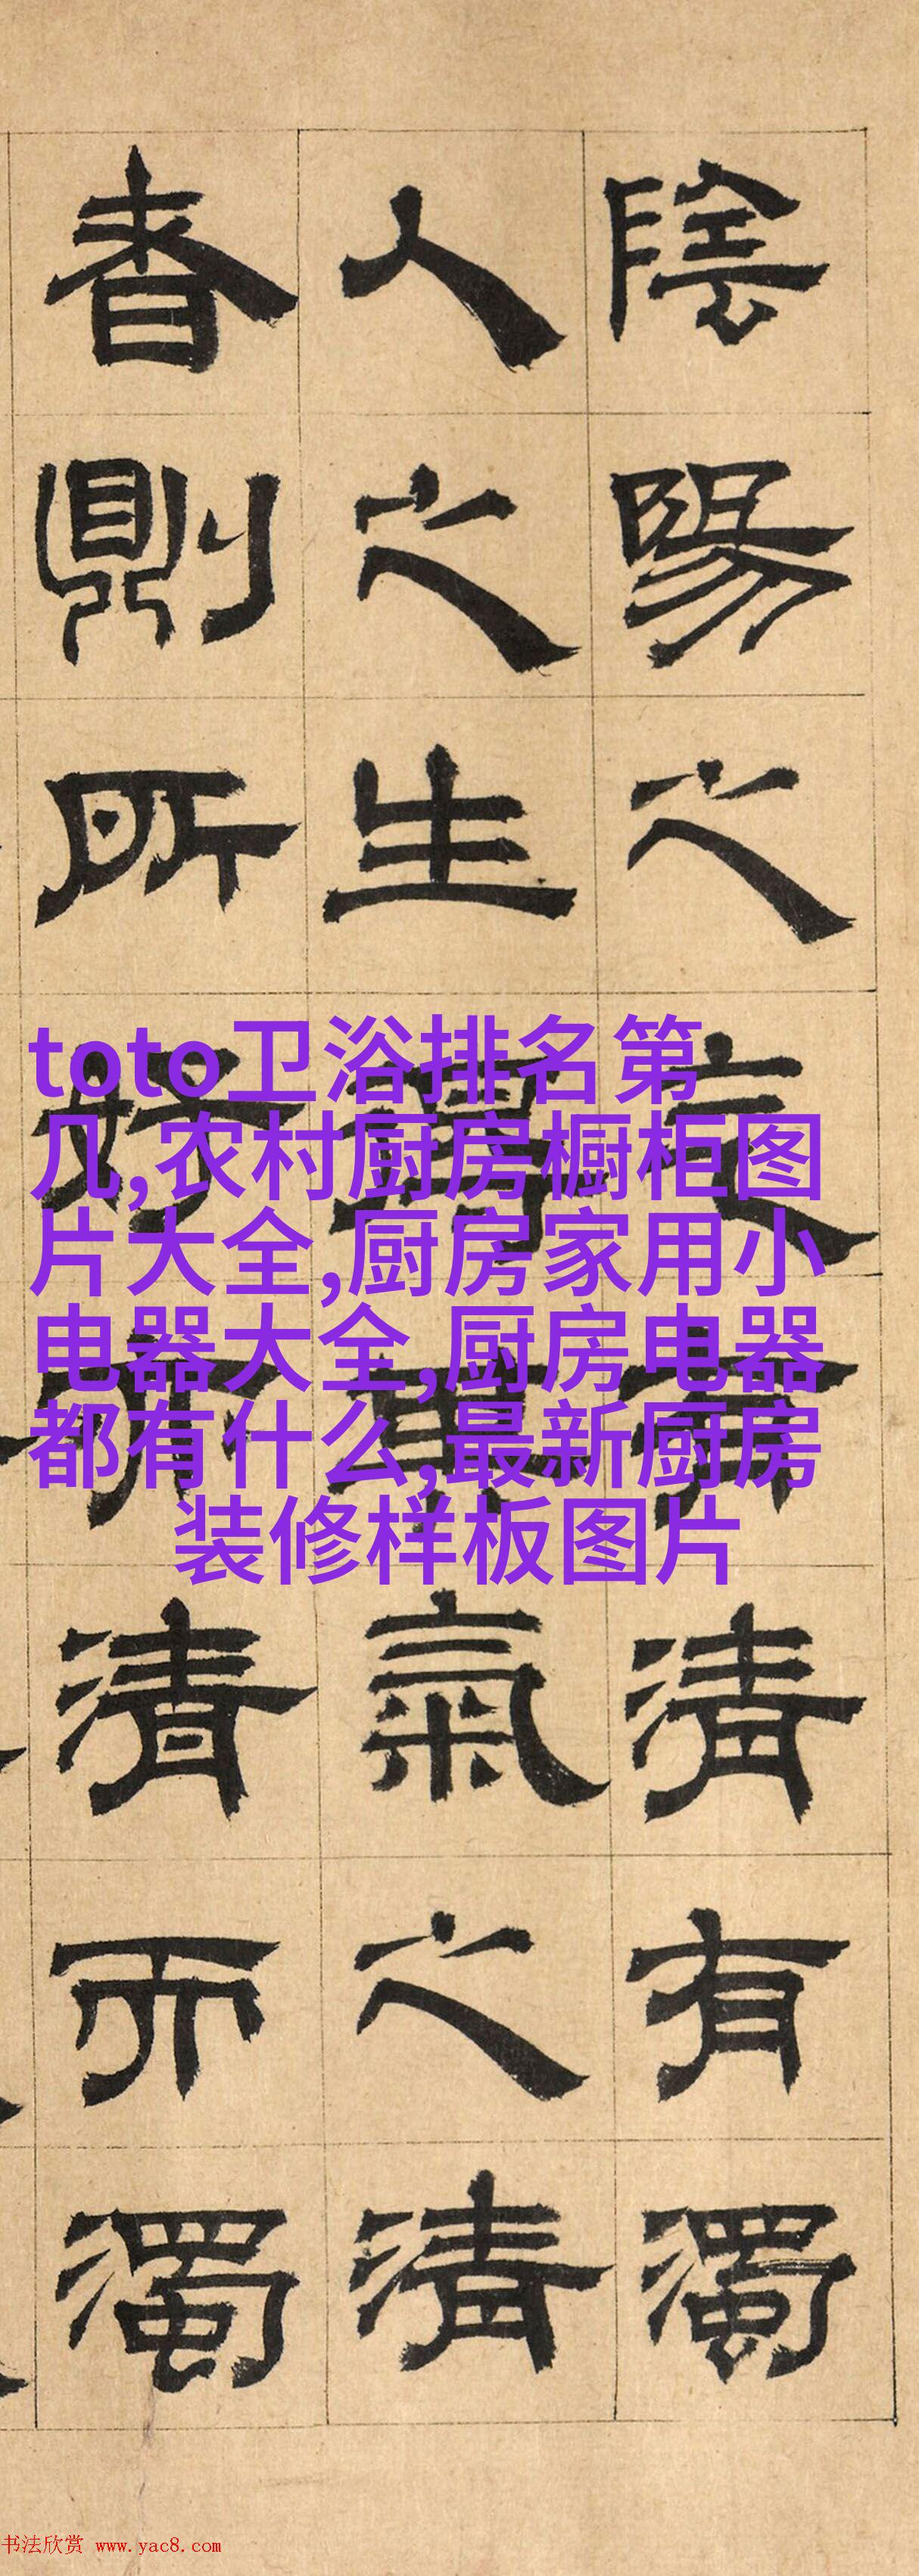 陰陽之有清有濁
人之生其氣之清
者則所好清而濁
toto卫浴排名第
几,农村厨房橱柜图
片大全,厨房家用小
电器大全,厨房电器
都有什么,最新厨房
装修样板图片
书法欣赏 www.yac8.com